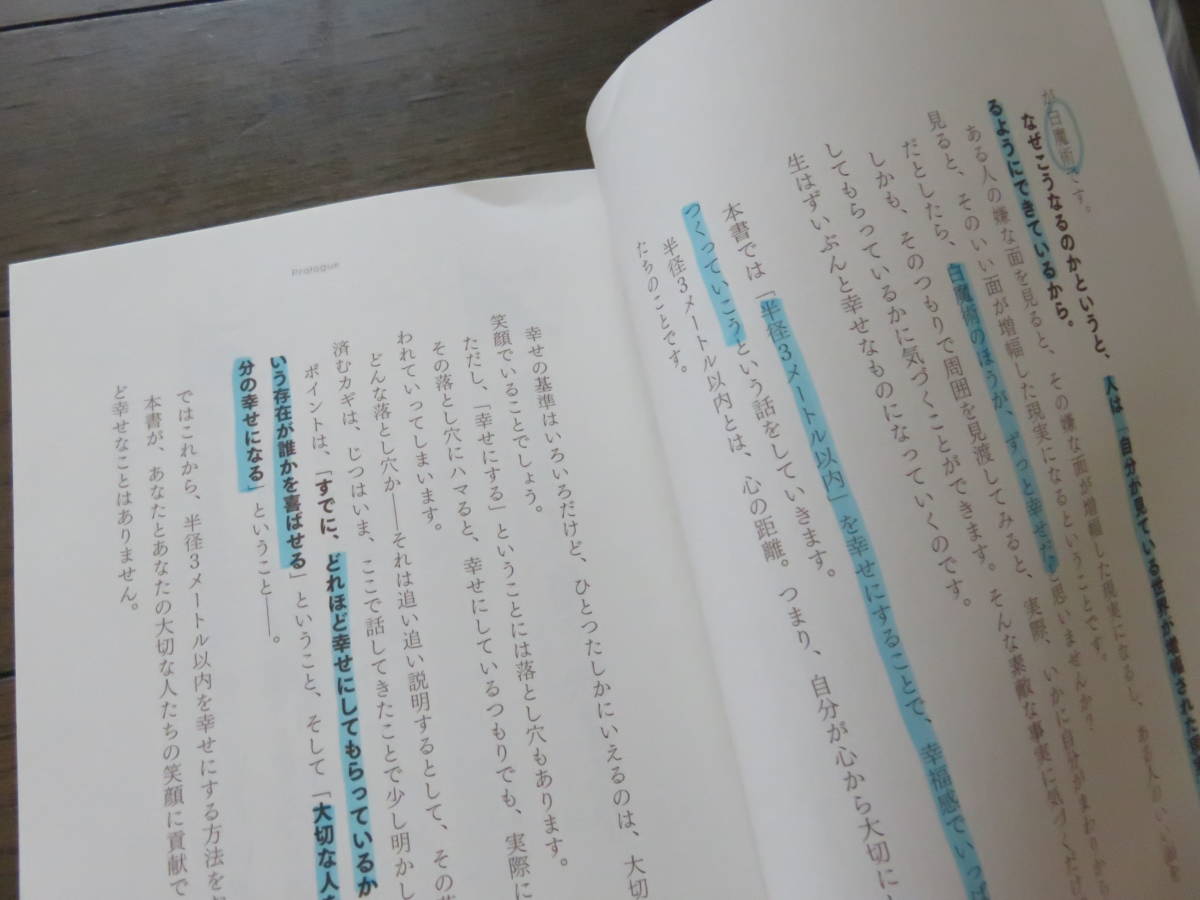 が白魔術です。
なぜこうなるのかというと、人は「自分が見ている世界が増幅された現実
るようにできているから。
ある人の嫌な面を見ると、その嫌な面が増幅した現実になるし、ある人のいい面を
見ると、そのいい面が増幅した現実になるということです。
だとしたら、白魔術のほうが、ずっと幸せだと思いませんか？
しかも、そのつもりで周囲を見渡してみると、実際、いかに自分がまわりから
してもらっているかに気づくことができます。そんな素敵な事実に気づくだけ
生はずいぶんと幸せなものになっていくのです。
本書では「半径3メートル以内」を幸せにすることで、幸福感でいっぱ
つくっていこうという話をしていきます。
半径3メートル以内とは、心の距離。つまり、自分が心から大切に
たちのことです。
Prologue
幸せの基準はいろいろだけど、ひとつたしかにいえるのは、大切
笑顔でいることでしょう。
ただし、「幸せにする」ということには落とし穴もあります。
その落とし穴にハマると、幸せにしているつもりでも、実際に
われていってしまいます。
どんな落とし穴か――それは追い追い説明するとして、その落
済むカギは、じつはいま、ここで話してきたことで少し明かし
ポイントは、「すでに、どれほど幸せにしてもらっているか
いう存在が誰かを喜ばせる」ということ、そして「大切な人を
分の幸せになる」ということ――。
ではこれから、半径3メートル以内を幸せにする方法を
本書が、あなたとあなたの大切な人たちの笑顔に貢献で
ど幸せなことはありません。